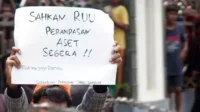 SAHKAN RUU
PERAMPASAN
ASET
SEGERA !!